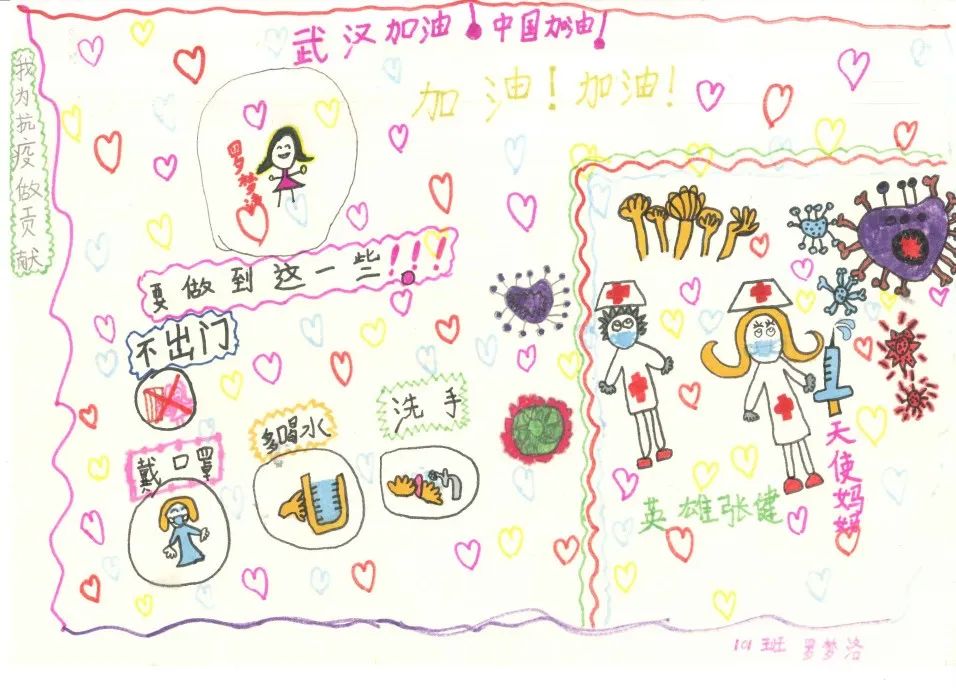 武汉加油！中国加油！
加油！加油！
我为抗疫做贡献
罗梦洛
要做到这一些！！！
不出门
戴口罩
多喝水
洗手
英雄张健
天使妈妈
101班 罗梦洛